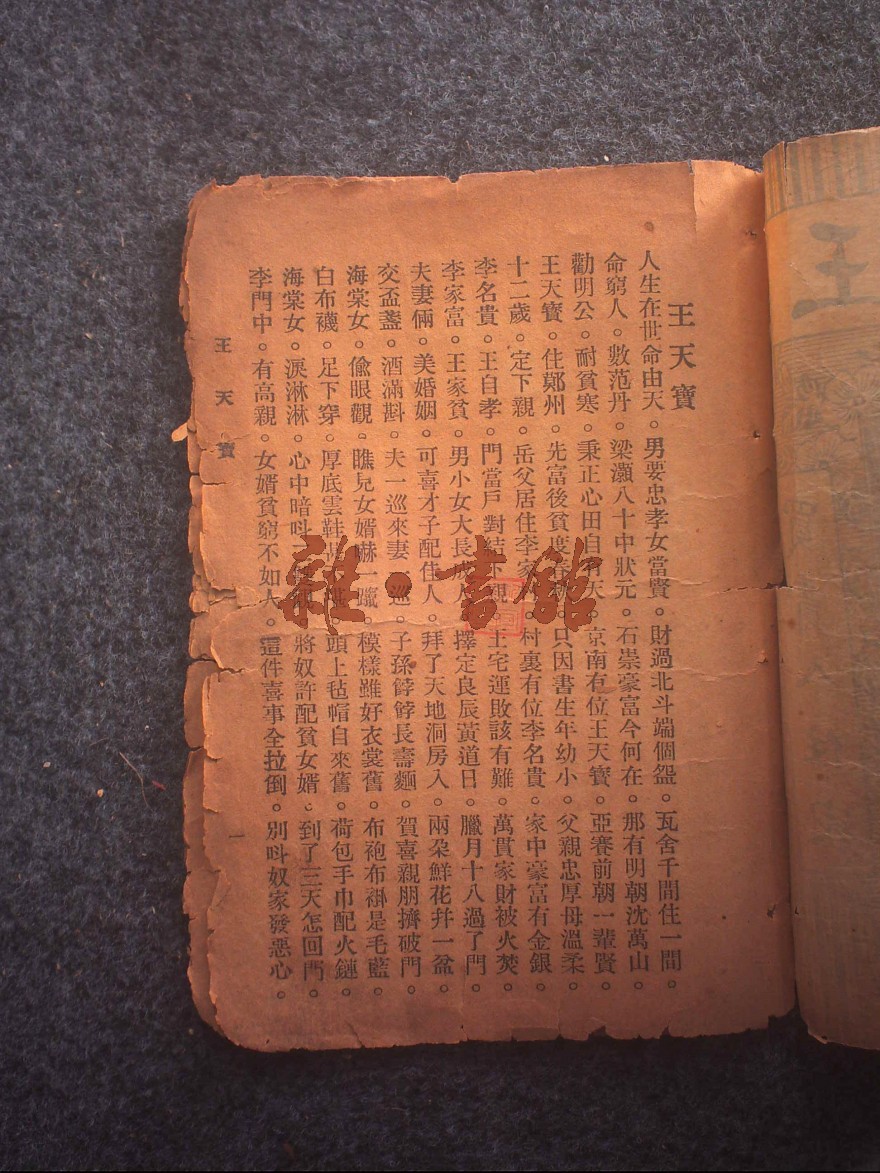 王天寶
人生在世命由天。男要忠孝女當賢。財過北斗端個盌。瓦舍千間住一間。
命窮人。數范丹。梁灝八十中狀元。石崇豪富今何在。那有明朝沈萬山。
勸明公。耐貧寒。秉正心田自有天。京南有位王天寶。亞賽前朝一輩賢。
王天寶。住鄭州。先富後貧度。只因書生年幼小。父親忠厚母溫柔。
十二歲。定下親。岳父居住李家。村裏有位李名貴。家中豪富有金銀。
李名貴。王自孝。門當戶對結。王宅運敗該有難。萬貫家財被火焚。
李家富。王家貧。男小女大長成人。擇定良辰黃道日。臘月十八過了門。
夫妻倆。美婚姻。可喜才子配佳人。拜了天地洞房入。兩朶鮮花幷一盆。
交盃盞。酒滿斟。夫一巡來妻一巡。子孫餑餑長壽麵。賀喜親朋擠破門。
海棠女。偷眼觀。瞧見女婿嚇一躐。模樣雖好衣裳舊。布袍布褂是毛藍。
白布襪。足下穿。厚底雲鞋。頭上毡帽自來舊。荷包手巾配火鏈。
海棠女。淚淋淋。心中暗呌。將奴許配貧女婿。到了三天怎回門。
李門中。有高親。女婿貧窮不如人。這件喜事全拉倒。別呌奴家發惡心。
王天寶
一
雜·書館
王